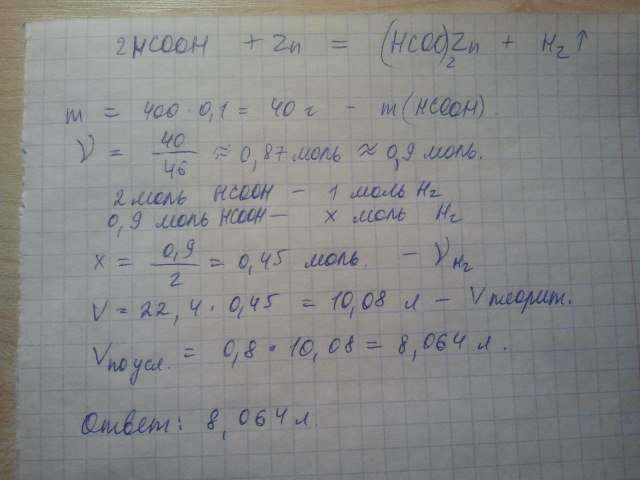 2HCOOH + Zn = (HCOO)₂Zn + H₂↑
m = 400 · 0,1 = 40 г - m(HCOOH).
ν = 40/46 ≈ 0,87 моль ≈ 0,9 моль.
2 моль HCOOH – 1 моль H₂
0,9 моль HCOOH – x моль H₂
x = 0,9/2 = 0,45 моль. – ν H₂
V = 22,4 · 0,45 = 10,08 л – Vтеорит.
Vпо усл. = 0,8 · 10,08 = 8,064 л.
Ответ: 8,064 л.